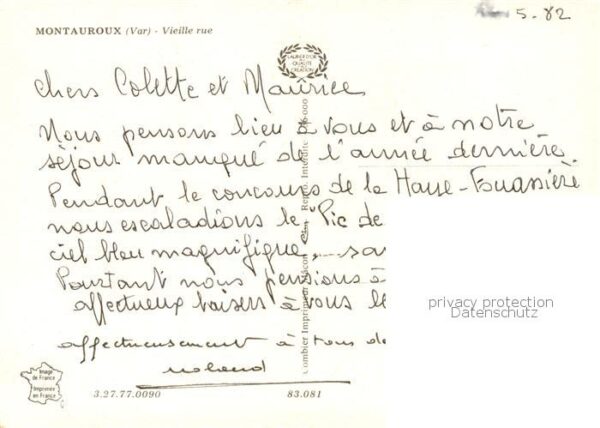 5.82
MONTAUROUX (Var) - Vieille rue
LABEUR D'OR
QUALITÉ
CREATION
chers Colette et Maurice,
Nous pensons bien à vous et à notre
séjour manqué de l'année dernière.
Pendant le concours de la Haye-Fouassière
nous escaladions le Pic de
ciel bleu magnifique,
Pourtant nous pensions à
affectueux baisers à vous
affectueusement à tous de
roland
privacy protection
Datenschutz
Image
de France
Imprimée
en France
3.27.77.0090
83.081
Combier Imprimeur Mâcon
Repro. Interdite